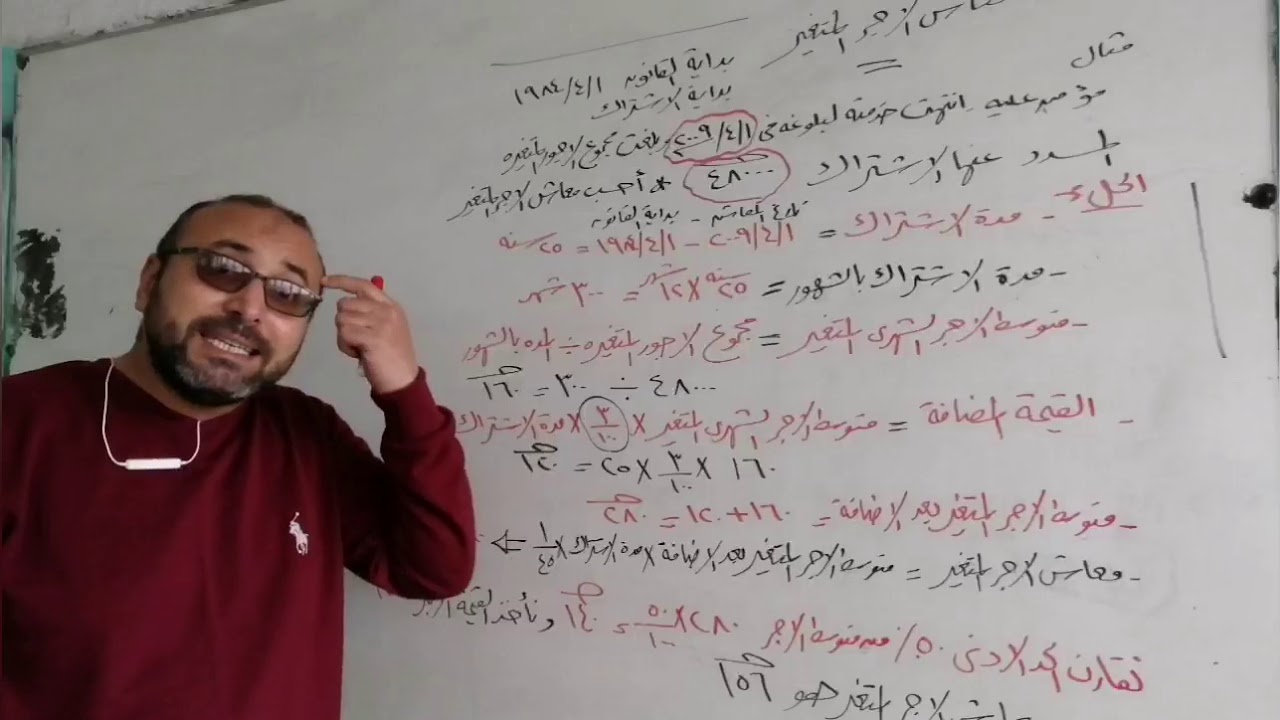 معاش الاجر المتغير
مثال
بداية القانون ١٩٨٤/٤/١
بداية الاشتراك
مؤمن عليه انتهت خدمته لبلوغه فى ٢٠٠٩/٤/١ وبلغت مجموع الاجور المتغيره
المسدد عنها الاشتراك ٤٨٠٠٠ جـ * أحسب معاش الاجر المتغير
الحل
تاريخ المعاش - بداية القانون
- مدة الاشتراك = ٢٠٠٩/٤/١ - ١٩٨٤/٤/١ = ٢٥ سنه
- مدة الاشتراك بالشهور = ٢٥ سنه × ١٢ شهر = ٣٠٠ شهر
- متوسط الاجر الشهرى المتغير = مجموع الاجور المتغيره ÷ المده بالشهور
٤٨٠٠٠ ÷ ٣٠٠ = ١٦٠ جـ
- القيمة المضافة = متوسط الاجر الشهرى المتغير × ٣/١٠٠ × مدة الاشتراك
١٦٠ × ٣/١٠٠ × ٢٥ = ١٢٠ جـ
- متوسط الاجر المتغير بعد الاضافة = ١٦٠ + ١٢٠ = ٢٨٠ جـ
- معاش الاجر المتغير = متوسط الاجر المتغير بعد الاضافة × مدة الاشتراك × ١/٤٥
نقارن الحد الادنى ٥٠٪ من متوسط الاجر ٢٨٠ × ٥٠/١٠٠ = ١٤٠ جـ و نأخذ القيمة
الاجر المتغير هو ١٥٦ جـ